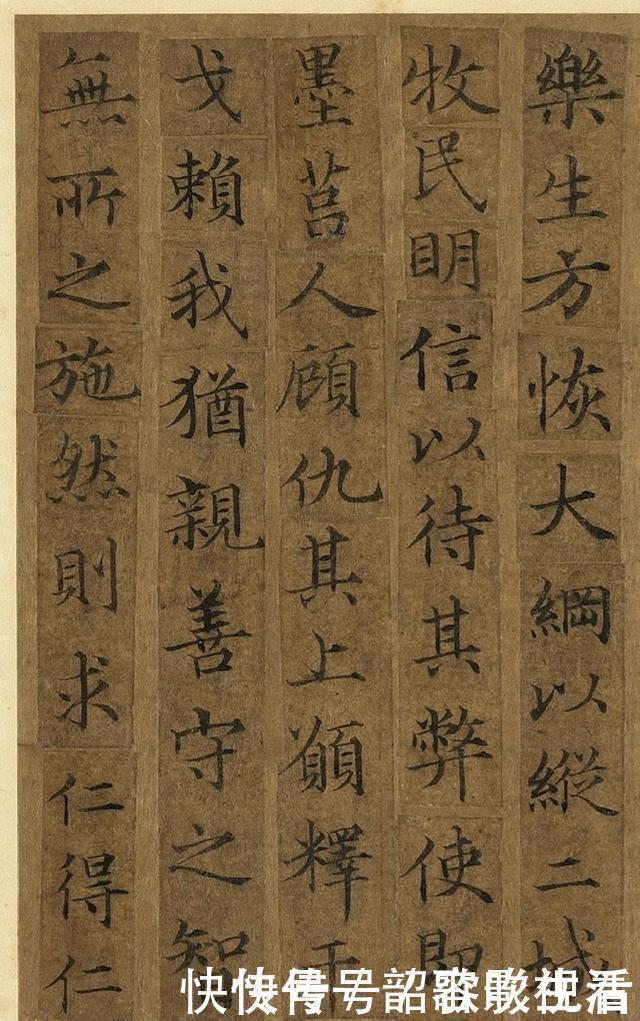 樂生方恢大綱以縱二城
牧民明信以待其弊使即
墨莒人顧仇其上願釋干
戈賴我猶親善守之智
無所之施然則求仁得仁
快传号